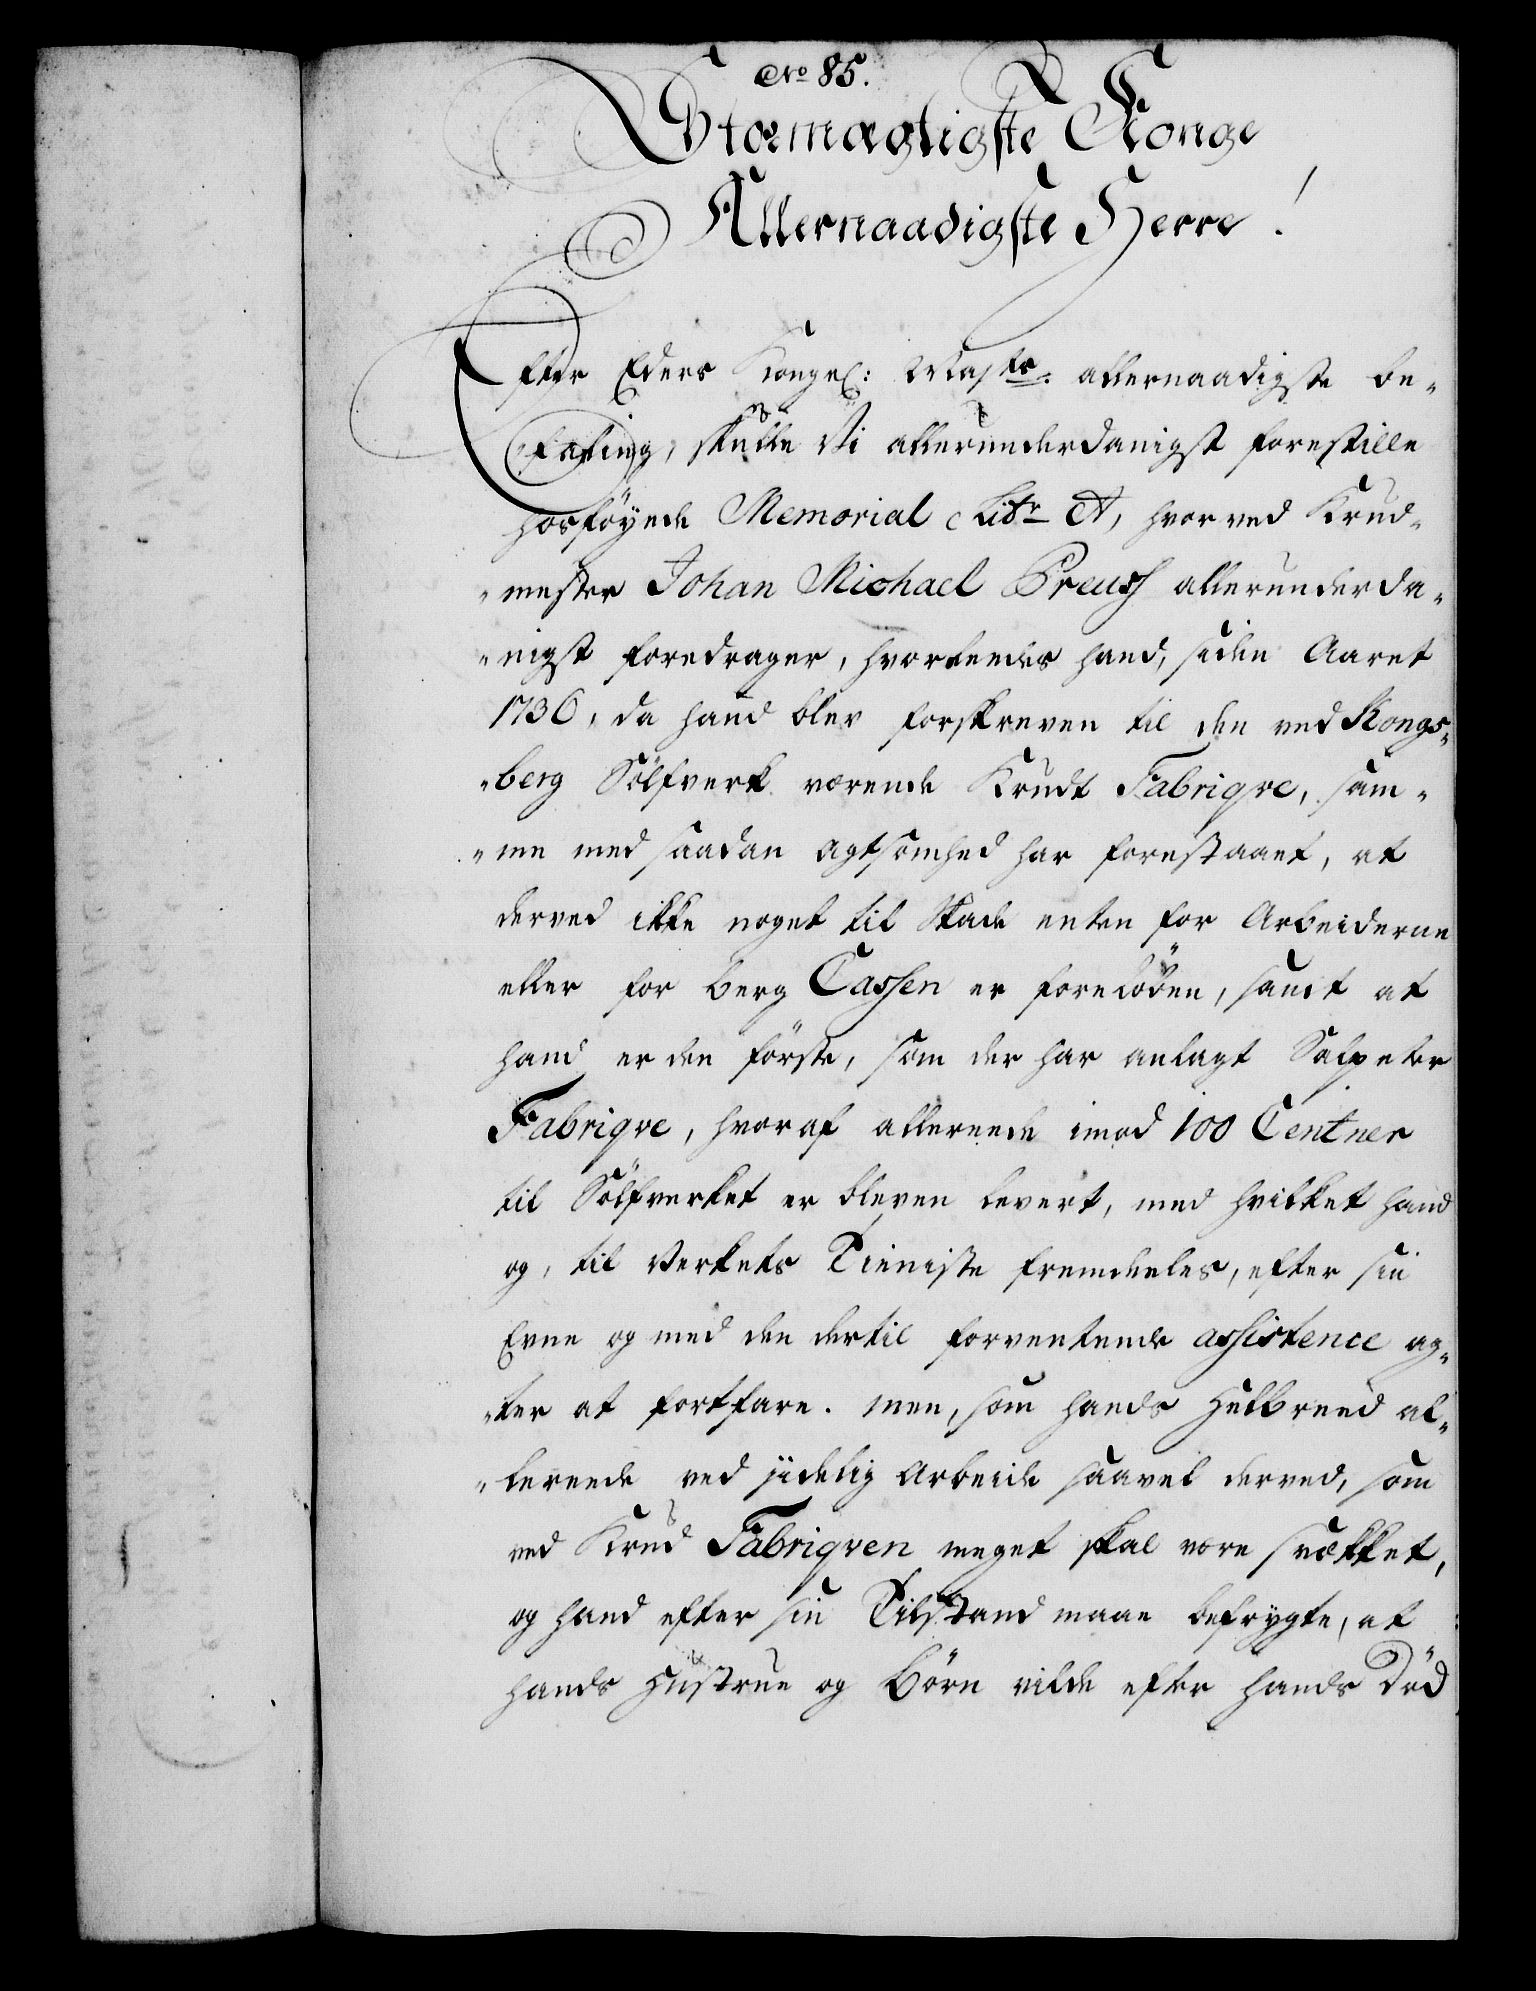 No 85.
Stormægtigste Konge
Allernaadigste Herre!
Efter Eders Kongel: Mayts. allernaadigste be-
faling, skulle Vi allerunderdanigst forestille
hosföyede Memorial Litr A, hvorved Krud-
"mester Johan Michael Preusz allerunderda-
"nigst foredrager, hvorledes hand, siden Aaret
1736, da hand blev forskreven til den ved Kongs-
"berg Sölfverk værende Krudt Fabriqve, sam-
"me med saadan agtsomhed har forestaaet, at
derved ikke noget til Skade enten for Arbeiderne
eller for Berg Cassen er forelöben, samt at
hand er den förste, som der har anlagt Salpeter
Fabriqve, hvoraf allereede imod 100 Centner
til Sölfverket er bleven levert, med hvilket hand
og, til Verkets Tieniste fremdeeles, efter sin
Evne og med den dertil forventende assistence ag-
"ter at fortfare. Men, som hands Helbreed al-
"lereede ved jidelig Arbeide saavel derved, som
ved Krud Fabriqven meget skal være svækket,
og hand efter sin Tilstand maae befrygte, at
hands Hustrue og Börn vilde efter hands Död